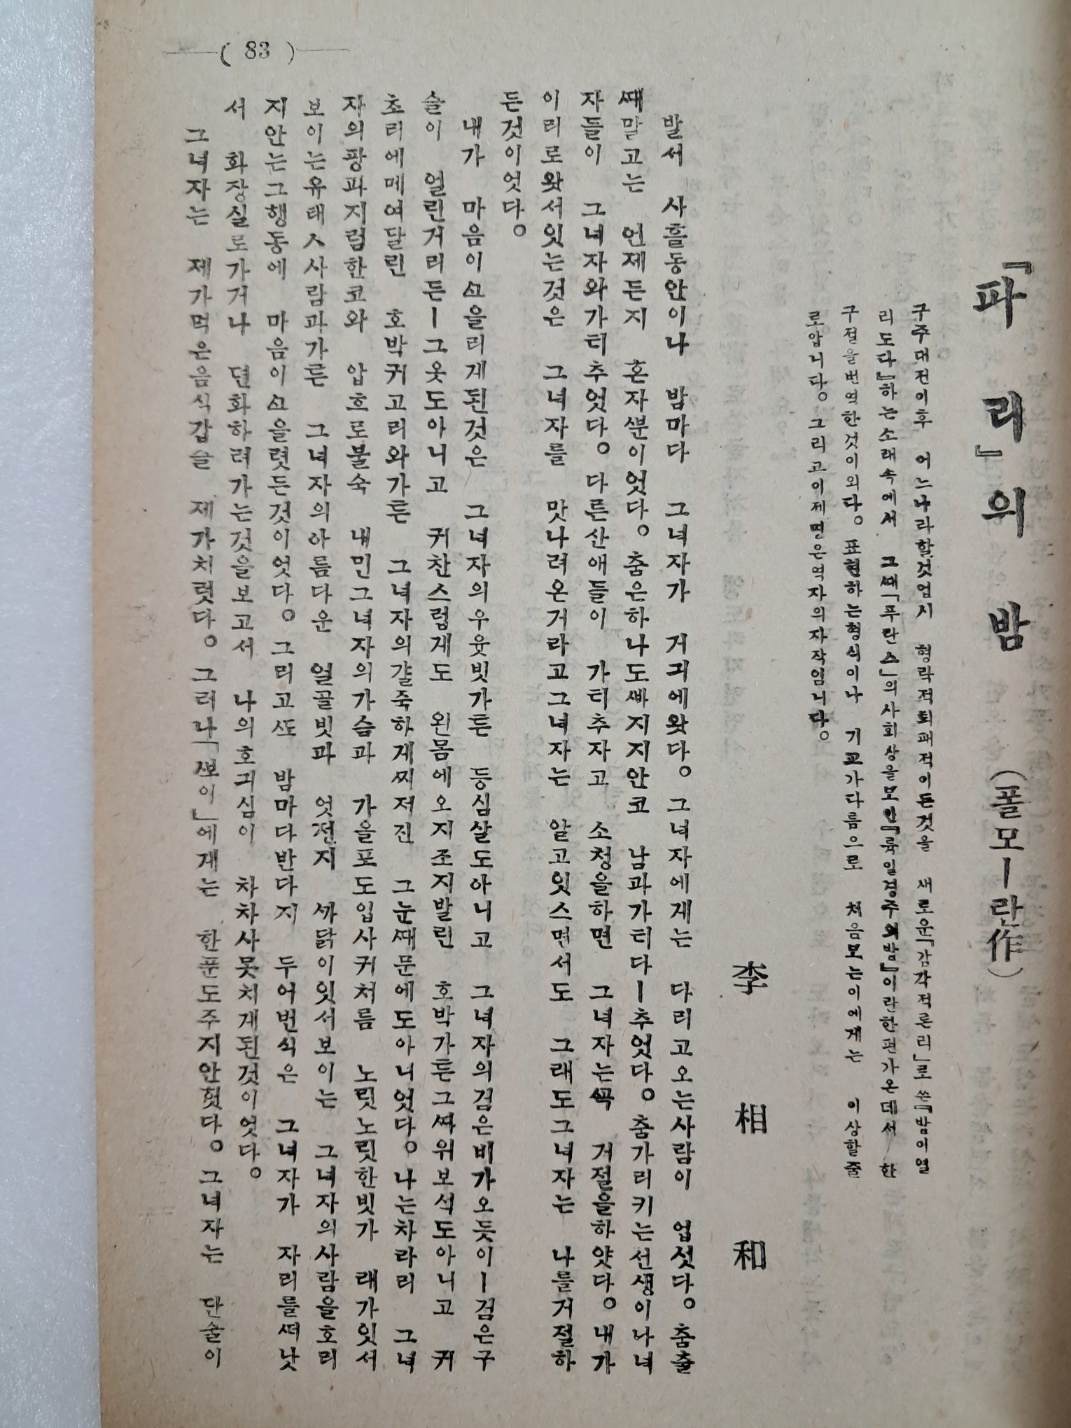 ( 83 )
『파리』의 밤 (폴모ー란作)
구주대전이후 어느나라할것업시 형락적퇴패적이든것을 새로운「감각적론리」로 쓴『밤이열
리도다』하는소래속에서 그때「푸란스」의사회상을모인『륙일경주의밤』이란한편가온데서 한
구절을번역한것이외다。표현하는형식이나 기교가다름으로 처음보는이에게는 이상할줄
로압니다。그리고이제명은역자의자작임니다。
李相和
발서 사흘동안이나 밤마다 그녀자가 거긔에왓다。그녀자에게는 다리고오는사람이 업섯다。춤출
ᄯᅢ말고는 언제든지 혼자분이엇다。춤은하나도ᄲᅡ지지안코 남과가티다ー추엇다。춤가리키는선생이나녀
자들이 그녀자와가티추엇다。다른산애들이 가티추자고 소청을하면 그녀자는ᄭᅩᆨ 거절을하얏다。내가
이리로왓서잇는것은 그녀자를 맛나려온거라고그녀자는 알고잇스면서도 그래도그녀자는 나를거절하
든것이엇다。
내가 마음이ᄭᅳ을리게된것은 그녀자의우윳빗가튼 등심살도아니고 그녀자의검은비가오듯이ー검은구
슬이 얼린거리든ー그옷도아니고 귀찬스럽게도 왼몸에오지조지발린 호박가튼그ᄶᅡ위보석도아니고 귀
초리에메여달린 호박귀고리와가튼 그녀자의걀죽하게찌저진 그눈ᄯᅢ문에도아니엇다。나는차라리 그녀
자의팡파지럼한코와 압흐로불숙 내민그녀자의가슴과 가을포도입사귀처름 노릿노릿한빗가 래가잇서
보이는유래人사람과가튼 그녀자의아름다운 얼골빗과 엇전지 ᄭᅡ닭이잇서보이는 그녀자의사람을호리
지안는그행동에 마음이ᄭᅳ을렷든것이엇다。그리고ᄯᅩ 밤마다반다지 두어번식은 그녀자가 자리를ᄯᅥ낫
서 화장실로가거나 뎐화하려가는것을보고서 나의호긔심이 차차사못치개된것이엇다。
그녀자는 제가먹은음식갑슬 제가치럿다。그러나「ᄲᅩ이」에개는 한푼도주지안헛다。그녀자는 단술이